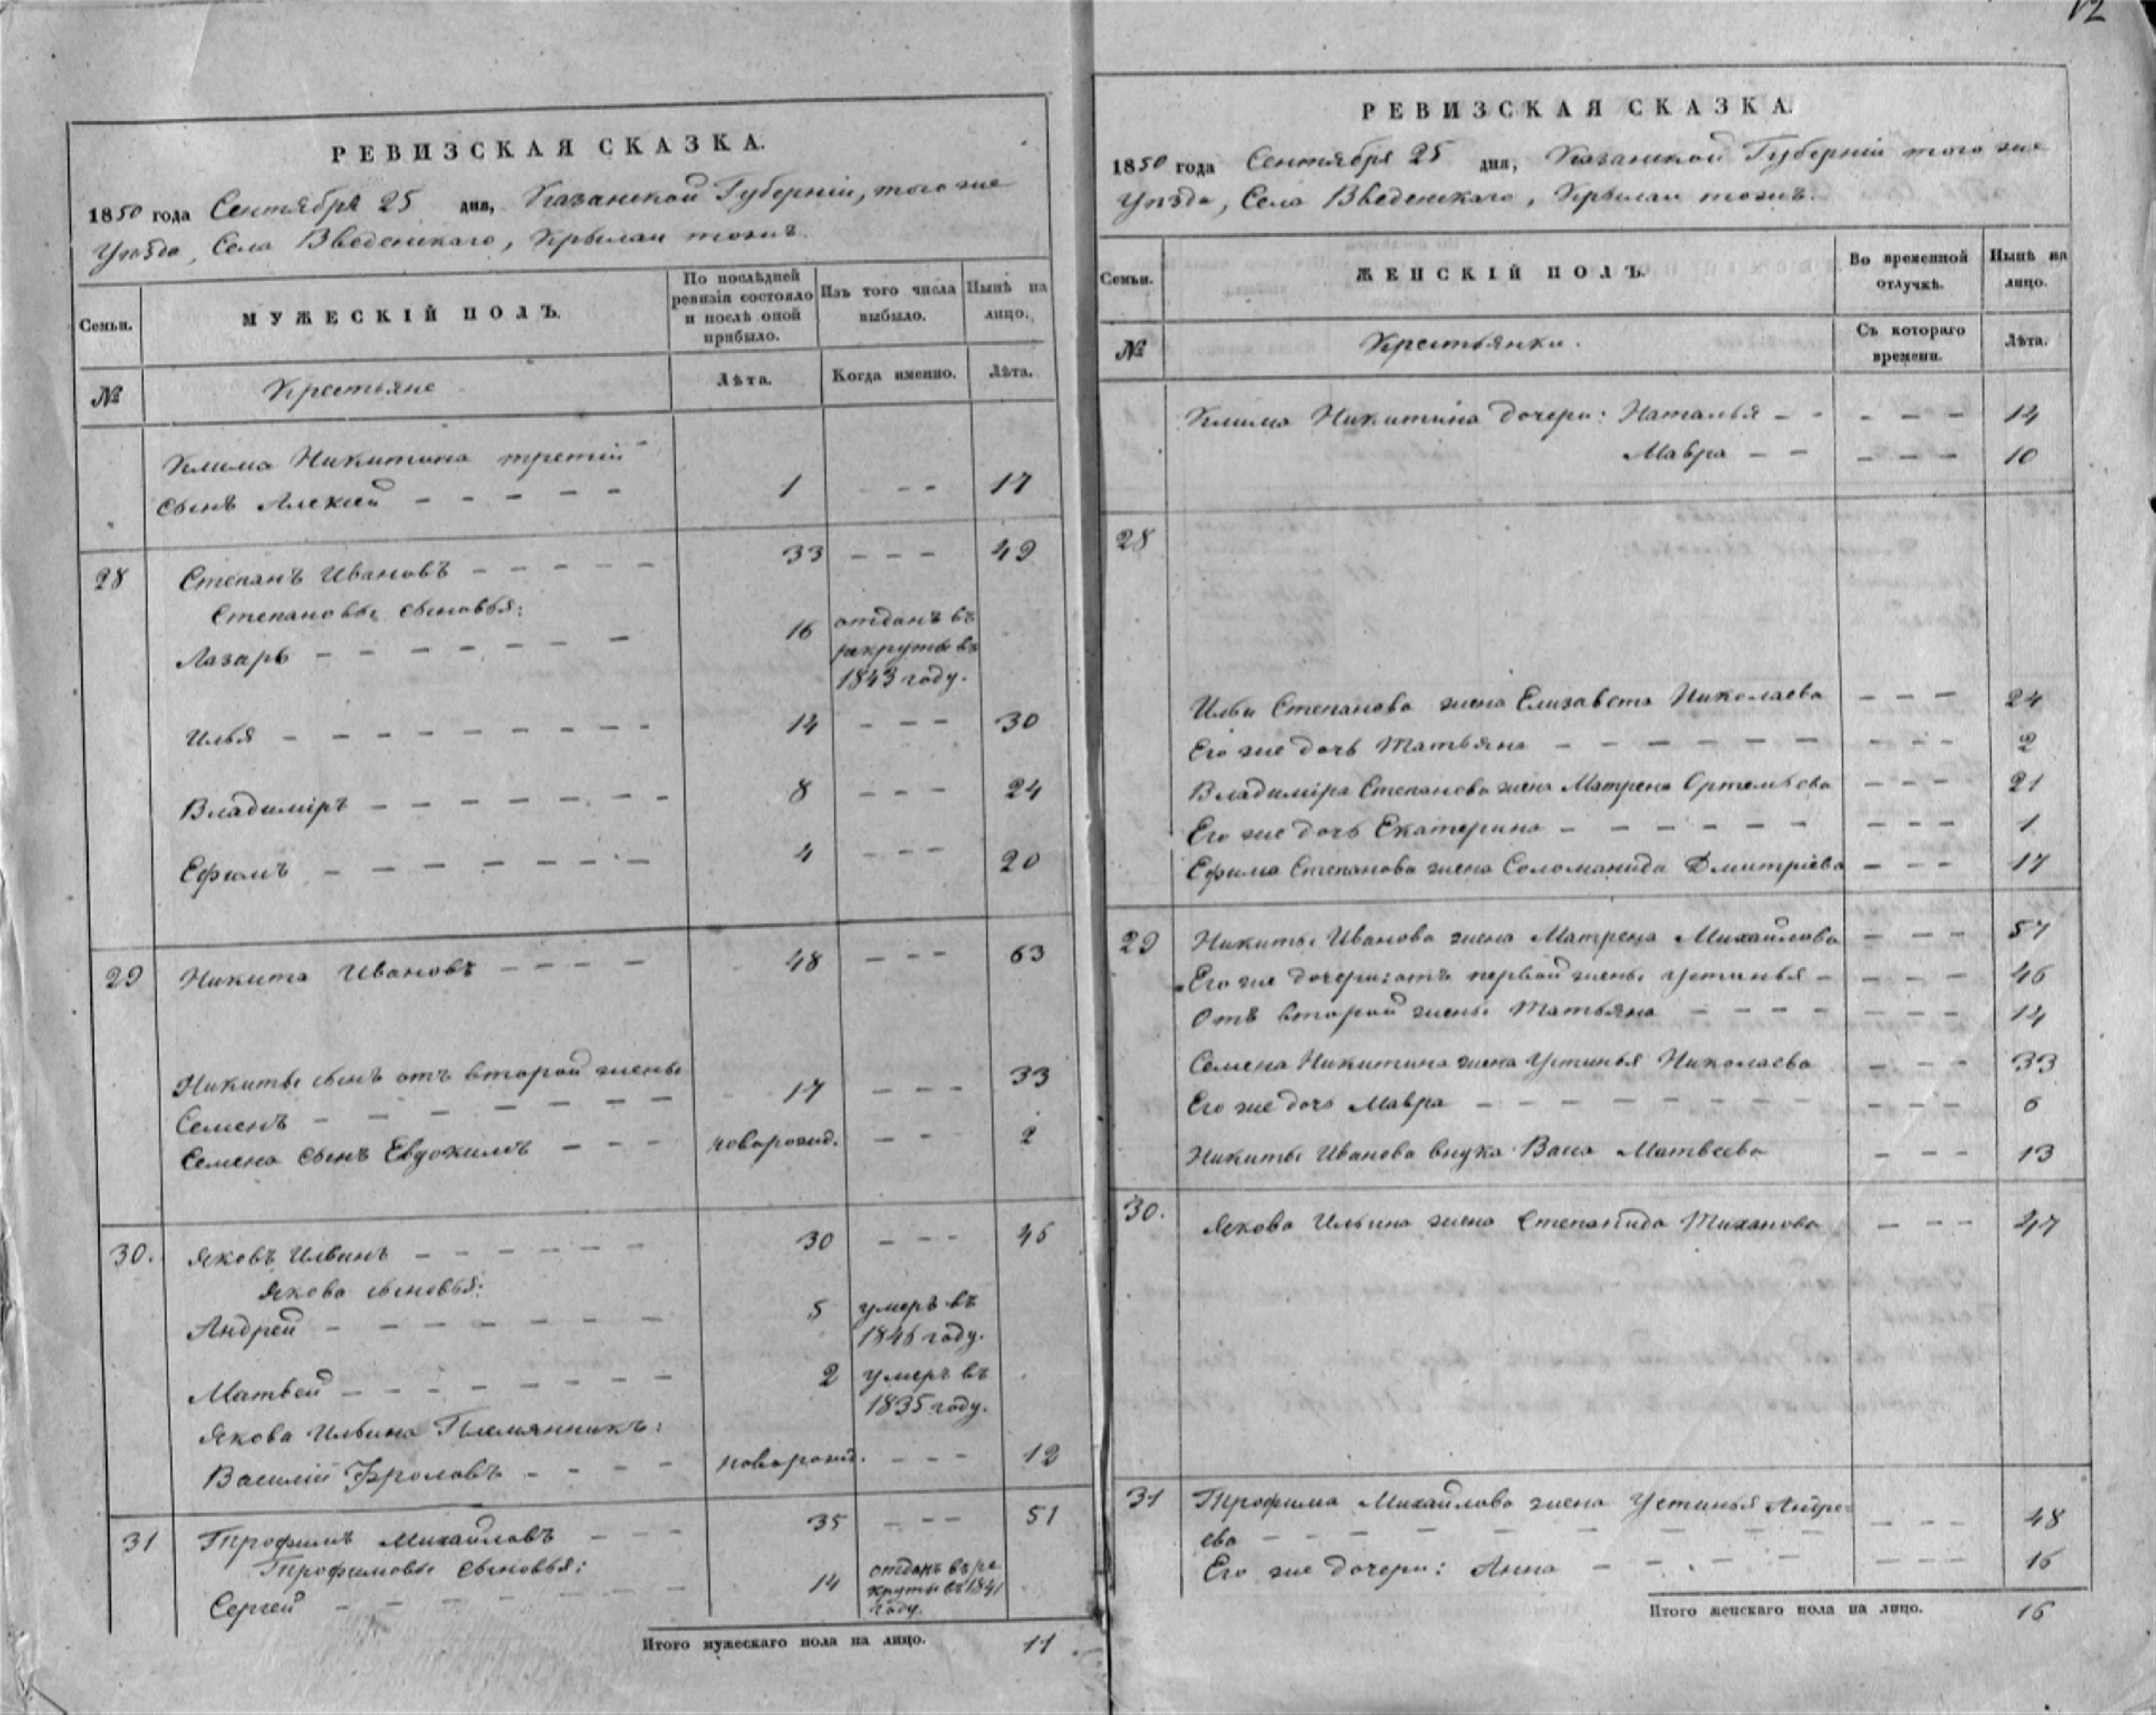 12
РЕВИЗСКАЯ СКАЗКА.
1850 года Сентября 25 дня, Казанской Губерніи, того же
Уѣзда, Села Введенскаго, Крылай тожъ.
Семьи.
МУЖЕСКІЙ ПОЛЪ.
По послѣдней ревизіи состояло и послѣ оной прибыло.
Изъ того числа выбыло.
Нынѣ на лицо.
№
Крестьяне
Лѣта.
Когда именно.
Лѣта.
Клима Никитина третій
сынъ Алексей - - - - - 1 - - - 17
28 Степанъ Ивановъ - - - - - 33 - - - 49
Степановы сыновья:
Лазарь - - - - - - - 16 отданъ въ
рекруты въ
1843 году.
Илья - - - - - - - - - 14 - - - 30
Владиміръ - - - - - - - 8 - - - 24
Ефимъ - - - - - - - 4 - - - 20
29 Никита Ивановъ - - - - 48 - - - 63
Никиты сынъ отъ второй жены
Семенъ - - - - - - - 17 - - - 33
Семена сынъ Евдокимъ - - - новорожд. - - 2
30. Яковъ Ильинъ - - - - - - 30 - - - 46
Якова сыновья:
Андрей - - - - - - - 5 умеръ въ
1846 году.
Матвей - - - - - - - - 2 умеръ въ
1835 году.
Якова Ильина Племянникъ:
Василій Фроловъ - - - - новорожд. - - - 12
31 Трофимъ Михайловъ - - - 35 - - - 51
Трофимовы сыновья:
Сергей - - - - - - - 14 отданъ въ ре
круты въ 1841
году.
Итого мужескаго пола на лицо. 11
РЕВИЗСКАЯ СКАЗКА.
1850 года Сентября 25 дня, Казанской Губерніи того же
Уѣзда, Села Введенскаго, Крылай тожъ.
Семьи.
ЖЕНСКІЙ ПОЛЪ.
Во временной отлучкѣ.
Нынѣ на лицо.
№
Крестьянки.
Съ котораго времени.
Лѣта.
Клима Никитина дочери: Наталья - - - - - 14
Мавра - - - - - 10
28
Ильи Степанова жена Елизавета Николаева - - - 24
Его же дочь Татьяна - - - - - - - - - - 2
Владиміра Степанова жена Матрена Артемьева - - - 21
Его же дочь Екатерина - - - - - - - - - 1
Ефима Степанова жена Соломанида Дмитріева - - - 17
29 Никиты Иванова жена Матрена Михайлова - - - 57
Его же дочери: отъ первой жены Устинья - - - - 46
Отъ второй жены Татьяна - - - - - - - 14
Семена Никитина жена Устинья Николаева - - - 33
Его же дочь Мавра - - - - - - - - - - - - 6
Никиты Иванова внука Васа Матвеева - - - 13
30. Якова Ильина жена Степанида Тиханова - - - 47
31 Трофима Михайлова жена Устинья Андре-
ева - - - - - - - - - - - 48
Его же дочери: Анна - - - - - - - - 16
Итого женскаго пола на лицо. 16